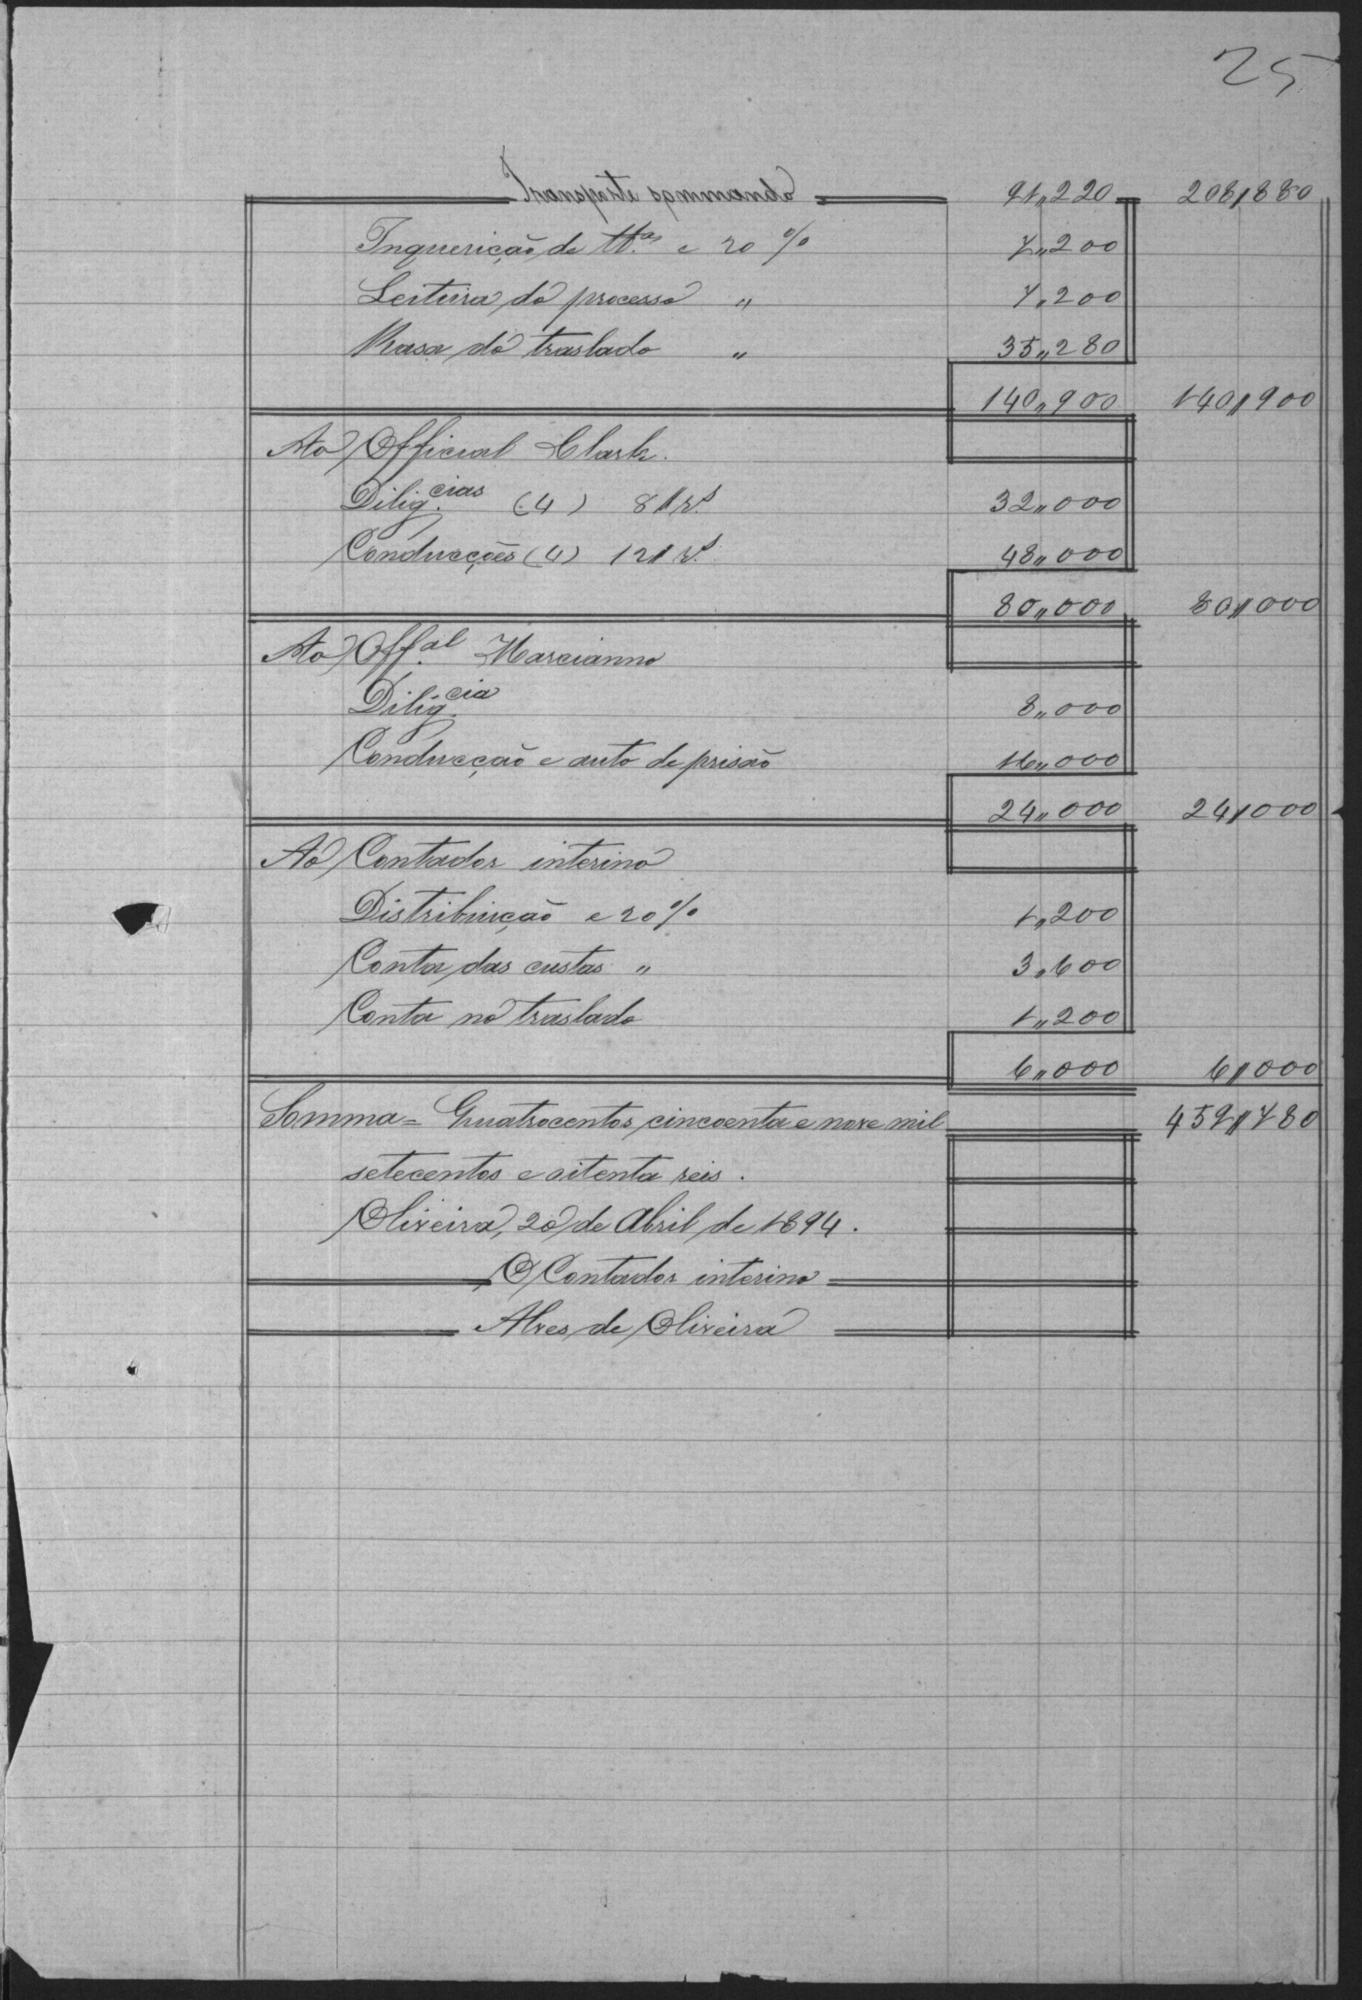 25
Transpórte sommando 91,,220 208//880
Inquerição de tt.as e 20 % 7,,200
Leitura do processo " 7,200
Rasa do traslado " 35,,280
140,,900 140//900
Ao Official Clark.
Dilig.cias (4) 8// r.s 32,,000
Conducções (4) 12// r.s 48,,000
80,,000 80//000
Ao Off.al Marcianno
Dilig.cia 8,,000
Conducção e auto de prisão 16,,000
24,,000 24//000
Ao Contador interino
Distribuição e 20% 1,,200
Conta das custas " 3,600
Conta no traslado 1,,200
6,,000 6//000
Somma = Quatrocentos cincoenta e nove mil 459//780
setecentos e oitenta reis.
Oliveira, 20 de Abril de 1894.
O Contador interino
Alves de Oliveira